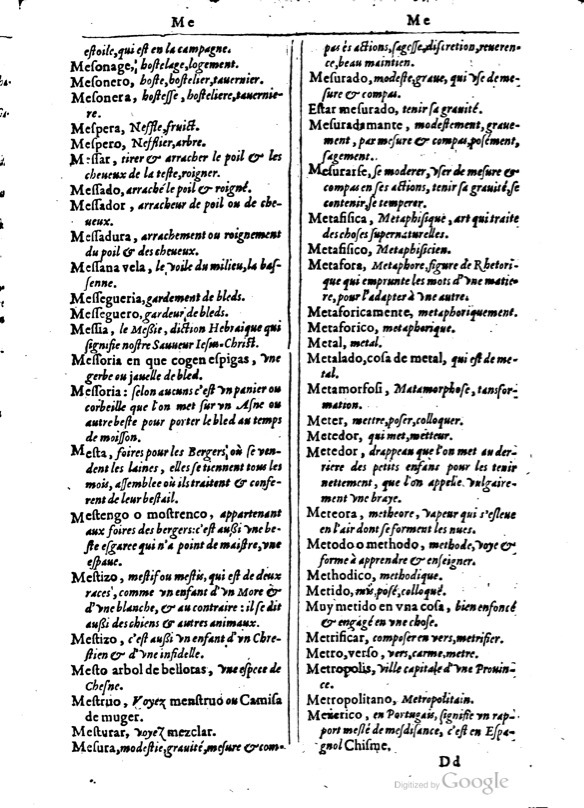 Me
estoile, qui est en la campagne.
Mesonage, hostelage, logement.
Mesonero, hoste, hostelier, tauernier.
Mesonera, hostesse, hosteliere, tauernie-
re.
Mespera, Neffle, fruict.
Mespero, Nefflier, arbre.
Messar, tirer & arracher le poil & les
cheueux de la teste, roigner.
Messado, arraché le poil & roigné.
Messador, arracheur de poil ou de che-
ueux.
Messadura, arrachement ou roignement
du poil & des cheueux.
Messana vela, le voile du milieu, la bas-
senne.
Messegueria, gardement de bleds.
Messeguero, gardeur de bleds.
Messia, le Messie, diction Hebraique qui
signifie nostre Sauueur Iesus-Christ.
Messoria en que cogen espigas, vne
gerbe ou jauelle de bled.
Messoria: selon aucuns c'est vn panier ou
corbeille que l'on met sur vn Asne ou
autre beste pour porter le bled au temps
de moisson.
Mesta, foires pour les Bergers, où se ven-
dent les laines, elles se tiennent tous les
mois, assemblee où ils traitent & confe-
rent de leur bestail.
Mestengo o mostrenco, appartenant
aux foires des bergers: c'est aussi vne be-
ste esgaree qui n'a point de maistre, vne
espaue.
Mestizo, mestif ou mestis, qui est de deux
races, comme vn enfant d'vn More &
d'vne blanche, & au contraire: il se dit
aussi des chiens & autres animaux.
Mestizo, c'est aussi vn enfant d'vn Chre-
stien & d'vne infidelle.
Mesto arbol de bellotas, vne espece de
Chesne.
Mestruo, Voyez menstruo ou Camisa
de muger.
Mesturar, voyez mezclar.
Mesura, modestie, grauité, mesure & com-
Me
pas és actions, sagesse, discretion, reueren-
ce, beau maintien.
Mesurado, modeste, graue, qui vse de me-
sure & compas.
Estar mesurado, tenir sa grauité.
Mesuradamante, modestement, graue-
ment, par mesure & compas, posément,
sagement.
Mesurarse, se moderer, vser de mesure &
compas en ses actions, tenir sa grauité, se
contenir, se temperer.
Metafisica, Metaphisique, art qui traite
des choses supernaturelles.
Metafisico, Metaphisicien.
Metafora, Metaphore, figure de Rhetori-
que qui emprunte les mots d'vne matie-
re, pour l'adapter à vne autre.
Metaforicamente, metaphoriquement.
Metaforico, metaphorique.
Metal, metal.
Metalado, cosa de metal, qui est de me-
tal.
Metamorfosi, Matamorphose, tansfor-
mation.
Meter, mettre, poser, colloquer.
Metedor, qui met, metteur.
Metedor, drappeau que l'on met au der-
riere des petits enfans pour les tenir
nettement, que l'on appelle vulgaire-
ment vne braye.
Meteora, metheore, vapeur qui s'esleue
en l'air dont se forment les nues.
Metodo o methodo, methode, voye &
forme à apprendre & enseigner.
Methodico, methodique.
Metido, mis, posé, colloqué.
Muy metido en vna cosa, bien enfoncé
& engagé en vne chose.
Metrificar, composer en vers, metrifier.
Metro, verso, vers, carme, metre.
Metropolis, ville capitale d'vne Prouin-
ce.
Metropolitano, Metropolitain.
Mexerico, en Portugais, signifie vn rap-
port meslé de mesdisance, c'est en Espa-
gnol Chisme.
Dd
Digitized by Google